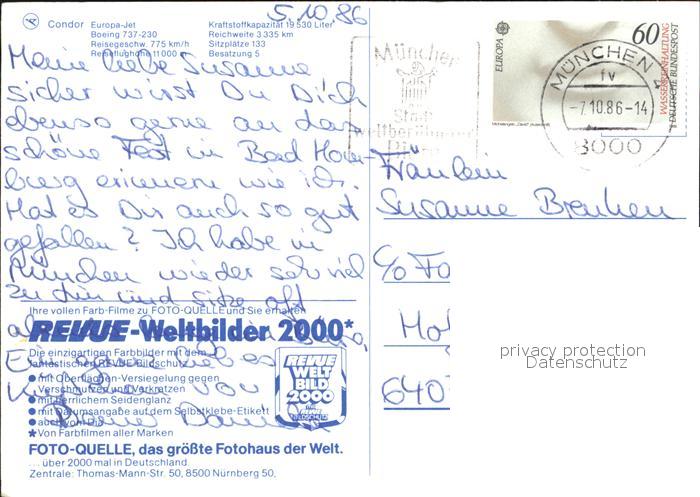 5.10.86
Condor Europa-Jet
Boeing 737-230
Reisegeschw. 775 km/h
Reiseflughöhe 11 000
Kraftstoffkapazität 19 530 Liter
Reichweite 3 335 km
Sitzplätze 133
Besatzung 5
Meine liebe Susanne
sicher wirst Du Dich
ebenso gerne an das
schöne Fest in Bad Hom-
burg erinnern wie ich.
Hat es Dir auch so gut
gefallen? Ich habe in
München wieder sehr viel
zu tun und sitze oft
Ihre vollen Farb-Filme zu FOTO-QUELLE und Sie erhalten
REVUE-Weltbilder 2000*
Die einzigartigen Farbbilder mit dem
fantastischen REVUE-Bildschutz
• mit Oberflächen-Versiegelung gegen
Verschmutzen und Verkratzen
• mit herrlichem Seidenglanz
• mit Datumsangabe auf dem Selbstklebe-Etikett
• auch vom Dia
*Von Farbfilmen aller Marken
REVUE
WELT
BILD
2000
FOTO-QUELLE, das größte Fotohaus der Welt.
... über 2000 mal in Deutschland.
Zentrale: Thomas-Mann-Str. 50, 8500 Nürnberg 50.
München
Stadt
EUROPA
60
WASSERREINHALTUNG
DEUTSCHE BUNDESPOST
MÜNCHEN 4
fv
-7.10.86-14
8000
Fräulein
Susanne Brenken
c/o Fo
Ho
640
privacy protection
Datenschutz